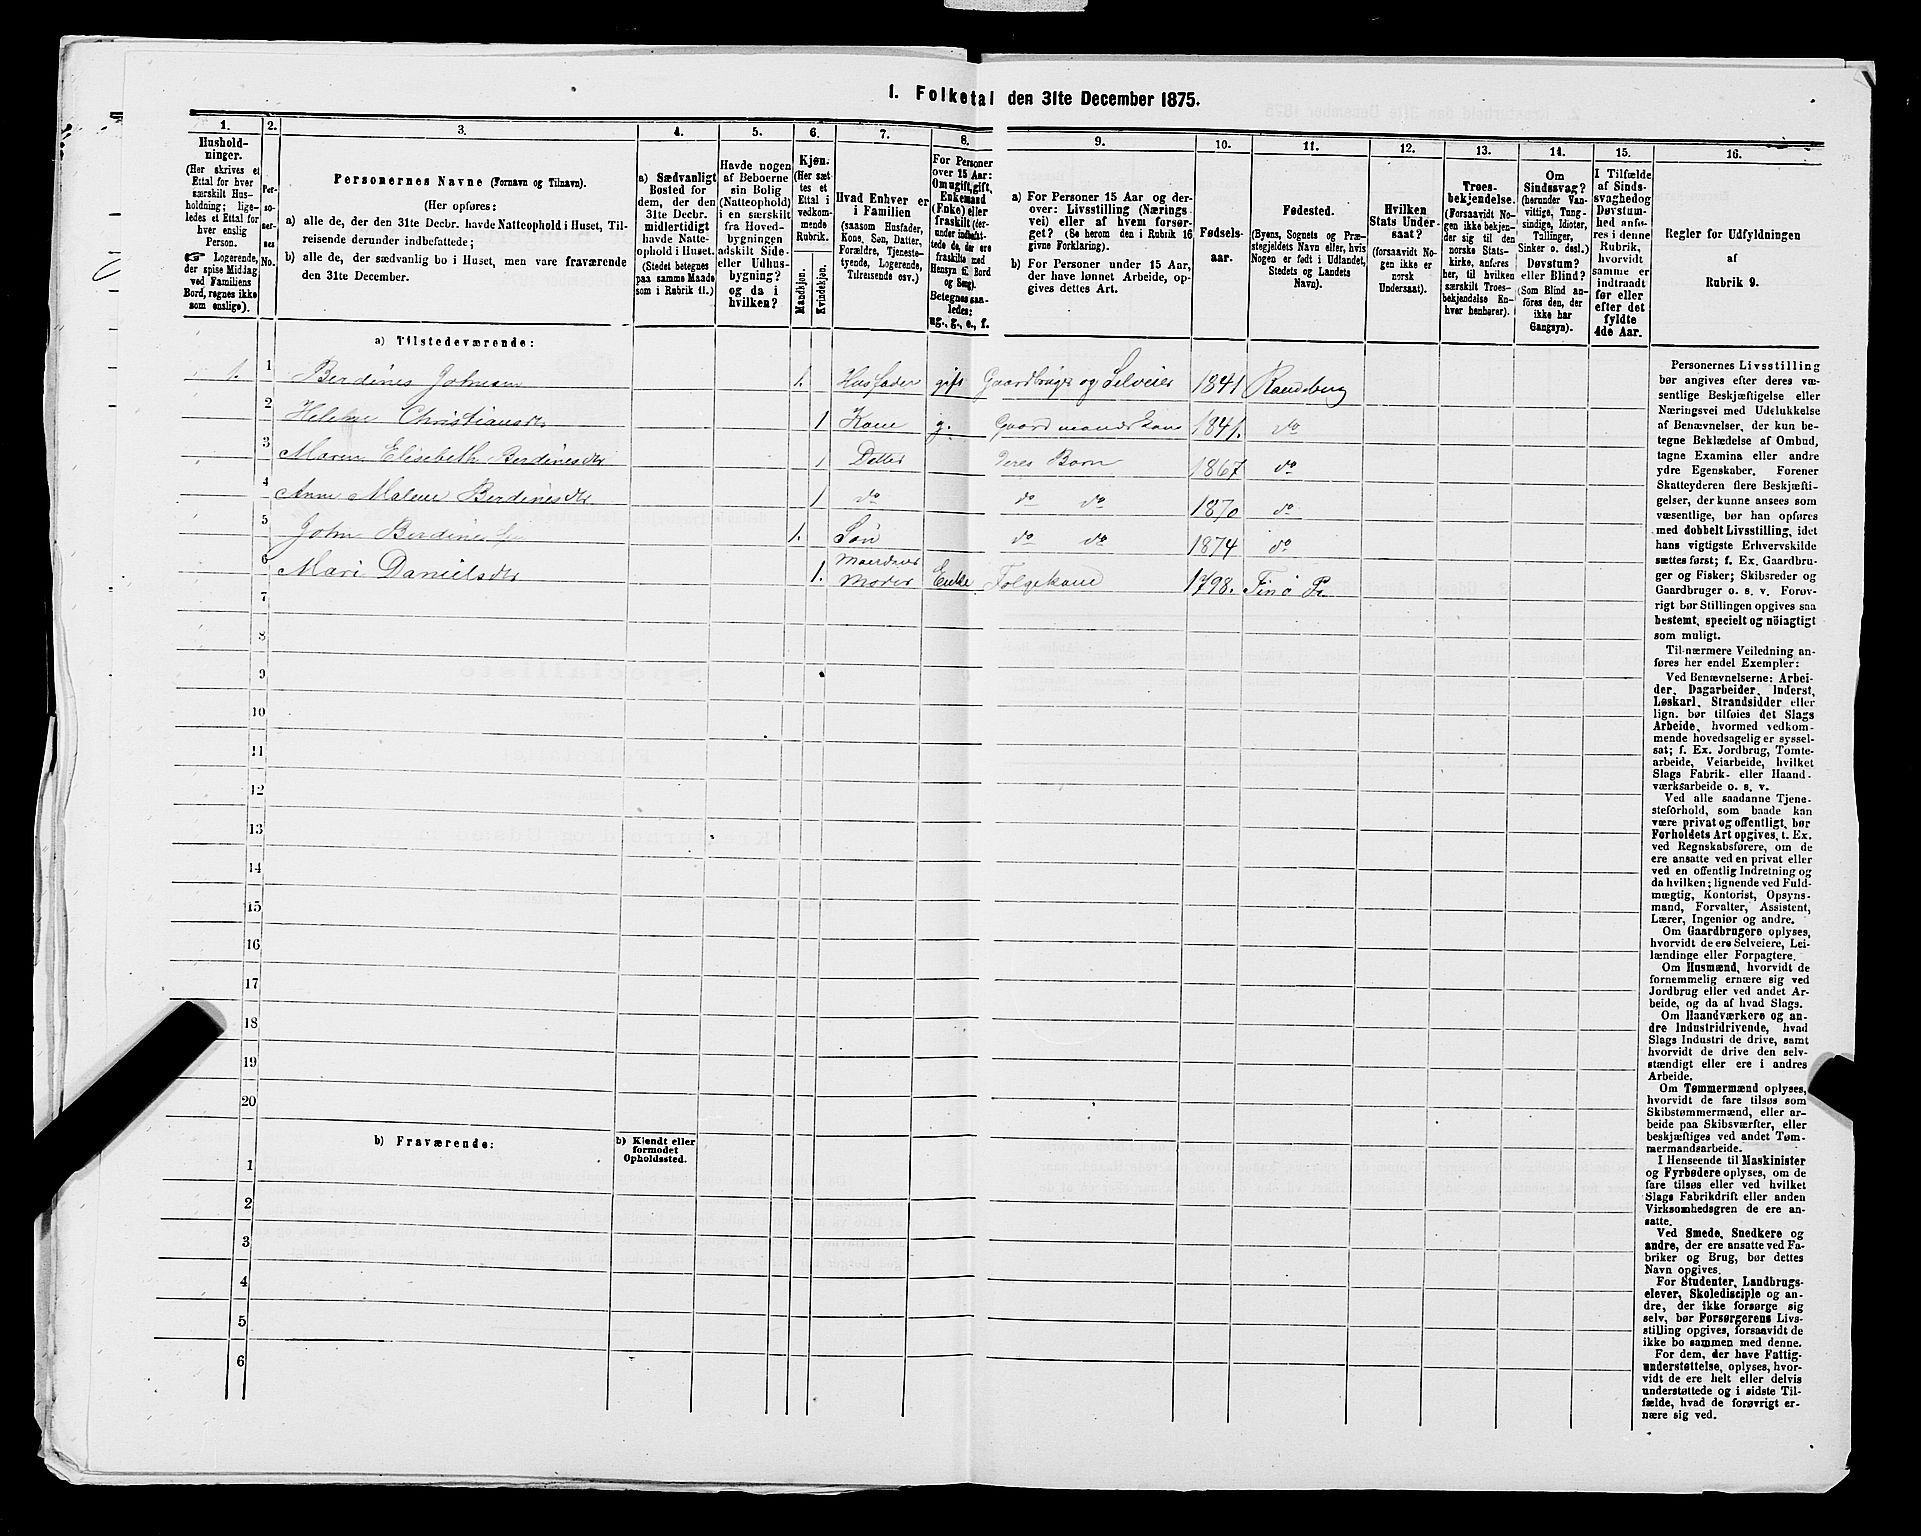 1. Folketal den 31te December 1875.
1. 2. 3. 4. 5. 6. 7. 8. 9. 10. 11. 12. 13. 14. 15. 16.
Hushold-
ninger.
(Her skrives et
Ettal for hver
særskilt Hus-
holdning; lige-
ledes et Ettal for
hver enslig
Person.
☞ Logerende,
der spise Middag
ved Familiens
Bord, regnes ikke
som enslige).
Per-
so-
ner-
nes
No.
Personernes Navne (Fornavn og Tilnavn).
(Her opføres:
a) alle de, der den 31te Decbr. havde Natteophold i Huset, Til-
reisende derunder indbefattede;
b) alle de, der sædvanlig bo i Huset, men vare fraværende
den 31te December.
a) Sædvanligt
Bosted for
dem, der den
31te Decbr.
midlertidigt
havde Natte-
ophold i Huset.
(Stedet betegnes
paa samme Maade
som i Rubrik 11.)
Havde nogen
af Beboerne
sin Bolig
(Natteophold)
i en særskilt
fra Hoved-
bygningen
adskilt Side-
eller Udhus-
bygning?
og da i
hvilken?
Kjøn.
(Her sæt-
tes et
Ettal i
vedkom-
mende
Rubrik.
Mandkjøn.
Kvindekjøn.
Hvad Enhver er
i Familien
(saasom Husfader,
Kone, Søn, Datter,
Forældre, Tjeneste-
tyende, Logerende,
Tilreisende osv.)
For Personer
over 15 Aar:
Om ugift, gift,
Enkemand
(Enke) eller
fraskilt (der-
under indbefat-
tede de, der ere
fraskilte med
Hensyn til Bord
og Seng).
Betegnes saa-
ledes:
ug., g., e., f.
a) For Personer 15 Aar og der-
over: Livsstilling (Nærings-
vei) eller af hvem forsør-
get? (Se herom den i Rubrik 16
givne Forklaring).
b) For Personer under 15 Aar,
der have lønnet Arbeide, op-
gives dettes Art.
Fødsels-
aar.
Fødested.
(Byens, Sognets og Præ-
stegjeldets Navn eller, hvis
Nogen er født i Udlandet,
Stedets og Landets
Navn).
Hvilken
Stats Under-
saat?
(forsaavidt No-
gen ikke er
norsk
Undersaat).
Troes-
bekjendelse.
(Forsaavidt No-
gen ikke bekjen-
der sig til den
norske Stats-
kirke, anføres
her, til hvilken
særskilt Troes-
bekjendelse En-
hver henhører).
Om
Sindssvag?
(herunder Van-
vittige, Tung-
sindige, Idioter,
Tullinger,
Sinker o. desl.)
Døvstum?
eller Blind?
(Som Blind an-
føres den, der
ikke har
Gangsyn).
I Tilfælde
af Sinds-
svaghed og
Døvstum-
hed anfø-
res i denne
Rubrik,
hvorvidt
samme er
indtraadt
før eller
efter det
fyldte
4de Aar.
Regler for Udfyldningen
af
Rubrik 9.
a) Tilstedeværende:
1. 1 Berdines Johnsen 1. Husfader gift Gaardbruger og Selveier 1841 Randeberg
2 Helene Christiansdtr 1 Kone g. Gaardmandskone 1841. do
3 Maren Elisebeth Berdinesdtr 1 Datter Deres Barn 1867 do
4 Anne Malene Berdinesdtr 1 do do do 1870 do
5 John Berdines 1. Søn do do 1874 do
6 Mari Danielsdtr 1. Moder Enke Folgekone 1798. Finø Pr.
7
8
9
10
11
12
13
14
15
16
17
18
19
20
b) Fraværende:
b) Kjendt eller
formodet
Opholdssted.
1
2
3
4
5
6
Personernes Livsstilling
bør angives efter deres væ-
sentlige Beskjæftigelse eller
Næringsvei med Udelukkelse
af Benævnelser, der kun be-
tegne Beklædelse af Ombud,
tagne Examina eller andre
ydre Egenskaber. Forener
Skatteyderen flere Beskjæfti-
gelser, der kunne ansees som
væsentlige, bør han opføres
med dobbelt Livsstilling, idet
hans vigtigste Erhvervskilde
sættes først; f. Ex. Gaardbru-
ger og Fisker; Skibsreder og
Gaardbruger o. s. v. Forøv-
rigt bør Stillingen opgives saa
bestemt, specielt og nöiagtigt
som muligt.
Til nærmere Veiledning an-
føres her endel Exempler:
Ved Benævnelserne: Arbei-
der, Dagarbeider, Inderst,
Løskarl, Strandsidder eller
lign. bør tilføies det Slags
Arbeide, hvormed vedkom-
mende hovedsagelig er syssel-
sat; f. Ex. Jordbrug, Tomte-
arbeide, Veiarbeide, hvilket
Slags Fabrik- eller Haand-
værksarbeide o. s. v.
Ved alle saadanne Tjene-
steforhold, som baade kan
være privat og offentligt, bør
Forholdets Art opgives, t. Ex.
ved Regnskabsførere, om de
ere ansatte ved en privat eller
ved en offentlig Indretning og
da hvilken; lignende ved Fuld-
mægtig, Kontorist, Opsyns-
mand, Forvalter, Assistent,
Lærer, Ingeniør og andre.
Om Gaardbrugere oplyses,
hvorvidt de ere Selveiere, Lei-
lændinge eller Forpagtere.
Om Husmænd, hvorvidt de
fornemmelig ernære sig ved
Jordbrug eller ved andet Ar-
beide, og da af hvad Slags.
Om Haandværkere og an-
dre Industridrivende, hvad
Slags Industri de drive, samt
hvorvidt de drive den selv-
stændigt eller ere i andres
Arbeide.
Om Tømmermænd oplyses,
hvorvidt de fare tilsøs som
Skibstømmermænd, eller ar-
beide paa Skibsværfter, eller
beskjæftiges ved andet Tøm-
mermandsarbeide.
I Henseende til Maskinister
og Fyrbødere oplyses, om de
fare tilsøs eller ved hvilket
Slags Fabrikdrift eller anden
Virksomhedsgren de ere an-
satte.
Ved Smede, Snedkere og
andre, der ere ansatte ved Fa-
briker og Brug, bør dettes
Navn opgives.
For Studenter, Landbrugs-
elever, Skoledisciple og an-
dre, der ikke forsørge sig
selv, bør Forsørgerens Livs-
stilling opgives, forsaavidt de
ikke bo sammen med denne.
For dem, der have Fattig-
understøttelse, oplyses, hvor-
vidt de ere helt eller delvis
understøttede og i sidste Til-
fælde, hvad de forøvrigt er-
nære sig ved.